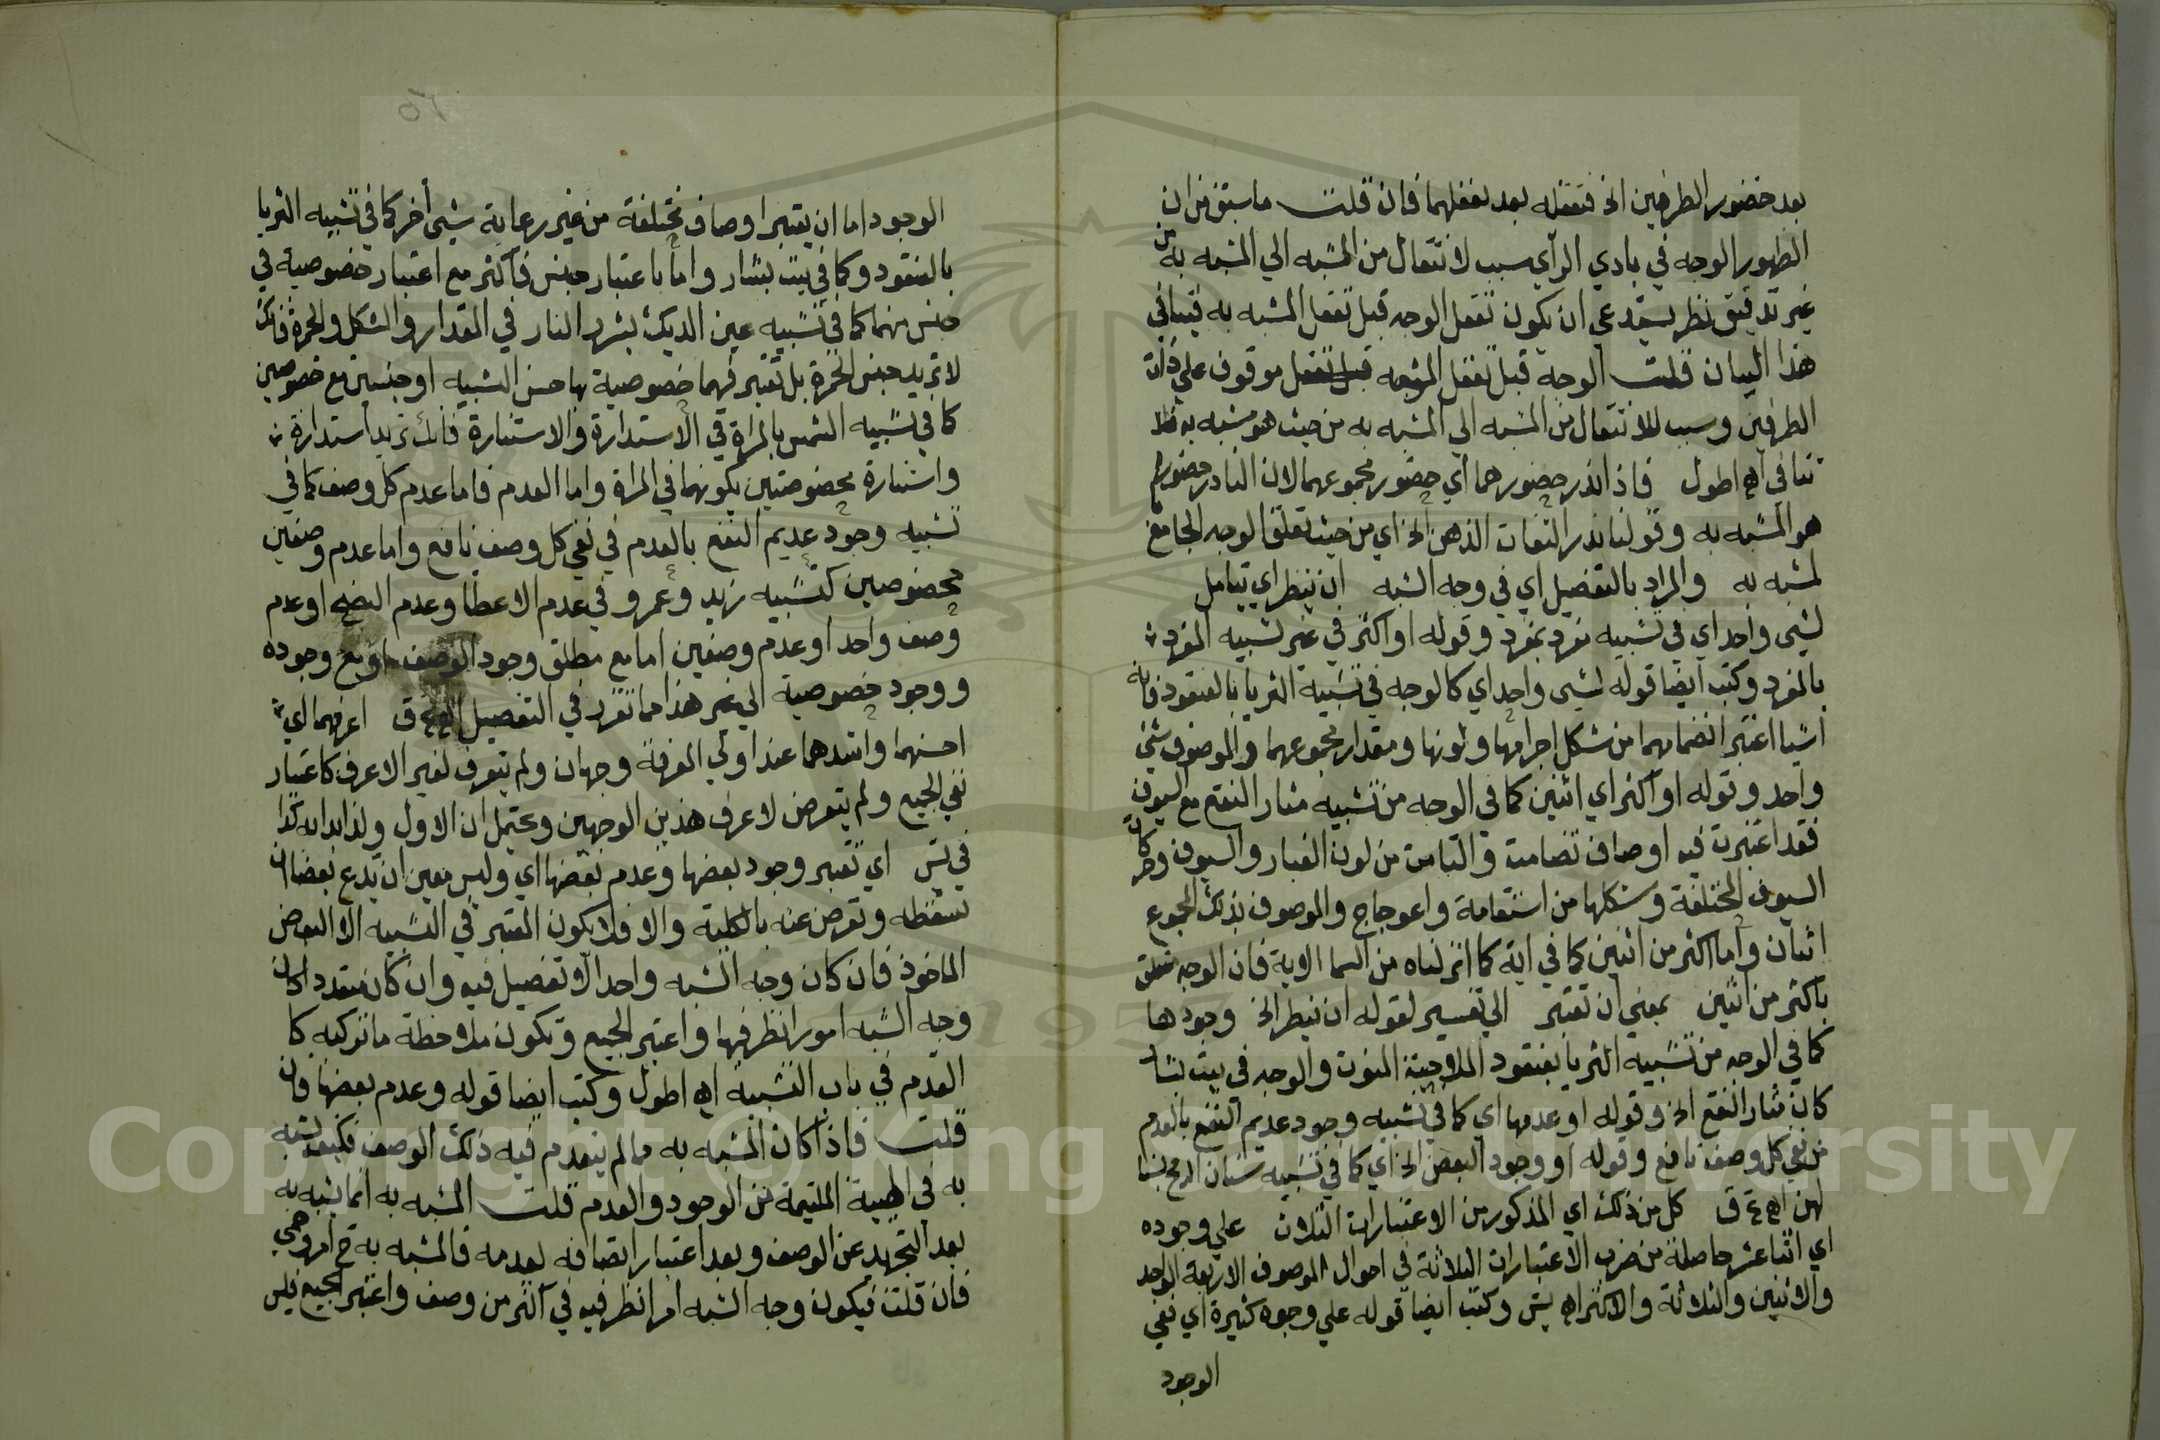 بعد حضور الطرفين الخ فتعقله بعد تعقلهما فان قلت ما سبق من ان
الظهور الوجه في بادي الرأي سبب لانتقال من المشبه الي المشبه به من
غير تدقيق نظر يستدعي ان يكون تعقل الوجه قبل تعقل المشبه به فينافي
هذا البيان قلت الوجه قبل تعقل المشبه موقوف علي ذات
الطرفين وسبب للانتقال من المشبه الي المشبه به من حيث هو مشبه به فلا
تنافي اه اطول فاذا ندر حضورهما اي حضور مجموعهما لان النادر حضوره
هو المشبه به وقولنا ندر التفات الذهن الخ اي من حيث تعلق الوجه الجامع
لمشبه به والمراد بالتفصيل اي في وجه الشبه ان ينظر اي يتامل
لشيء واحد اي في تشبيه مفرد بمفرد وقوله او اكثر في غير تشبيه المفرد
بالمفرد وكتب ايضا قوله لشيء واحد اي كالوجه في تشبيه الثريا بالعنقود فانه
اشيا اعتبر انضمامها من شكل اجرامها ولونها ومقدار مجموعهما والموصوف شيء
واحد وقوله او اكثر اي اثنين كما في الوجه من تشبيه مثار النقع مع السيوف
فقد اعتبرت فيه اوصاف تضامت والتامت من لون الغبار والسيوف وحركات
السيوف المختلفة وشكلها من استقامة واعوجاج والموصوف بذلك المجموع
اثنان واما اكثر من اثنين كما في اية كما انزلناه من السما الاية فان الوجه متعلق
باكثر من اثنين بمعني ان تعتبر الي تفسير لقوله ان ينظر الخ وجودها
كما في الوجه من تشبيه الثريا بعنقود الملاحية المنورت والوجه في بيت بشار
كان مثار النقع الخ وقوله او عدمها اي كما في تشبيه وجود عديم النفع بالعدم
من نفي كل وصف نافع وقوله او وجود البعض الخ اي كما في تشبيه سنان الرمح بسنا
لهن اه ع ق كل من ذلك اي المذكور من الاعتبارات الثلاث علي وجوده
اي اثنا عشر حاصلة من ضرب الاعتبارات الثلاثة في احوال الموصوف الاربعة الواحد
والاثنين والثلاثة والاكثر اه يس وكتب ايضا قوله علي وجوه كثيرة اي ففي
الوجود
الوجود اما ان يعتبر اوصاف مختلفة من غير رعاية شيء أخر كما في تشبيه الثريا
بالعنقود وكما في بيت بشار واما باعتبار جنس فاكثر مع اعتبار خصوصية في
جنس منهما كما في تشبيه عين الديك بشرر النار في المقدار والشكل والحمرة فانك
لا تريد جنس الحمرة بل تعتبر فيهما خصوصية بها حسن التشبيه او جنسين مع خصوصيتين
كما في تشبيه الشمس بالمراة في الاستدارة والاستنارة فانك تريد استدارة
واستنارة مخصوصتين بكونهما في المراة واما العدم فاما عدم كل وصف كما في
تشبيه وجود عديم النفع بالعدم في نفي كل وصف نافع واما عدم وصفين
مخصوصين كتشبيه زيد وعمرو في عدم الاعطا وعدم النصح او عدم
وصف واحد او عدم وصفين اما مع مطلق وجود الوصف او مع وجوده
ووجود خصوصية الي غير هذا مما تقرر في التفصيل اه ع ق اعرفهما اي
احسنهما واشدهما عند اولي المعرفة وجهان ولم يتعرف لغير الاعرف كاعتبار
نفي الجميع ولم يتعرض لاعرف هذين الوجهين ويحتمل ان الاول ولذا بدا به كذا
في يس اي تعتبر وجود بعضها وعدم بعضها اي وليس معني ان تدع بعضا ان
تسقطه وتعرض عنه بالكلية والا فلا يكون المعتبر في التشبيه الا البعض
الماخوذ فان كان وجه الشبه واحدا لا تفصيل فيه وان كان متعددا كان
وجه الشبه امورا نظر فيها واعتبر الجميع وتكون ملاحظة ما تركبه كما
القدم في باب التشبيه اه اطول وكتب ايضا قوله وعدم بعضها فان
قلت فاذا كان المشبه به مما لم ينعدم فيه ذلك الوصف فكيف يشبه
به في الهيئة الملتيمة من الوجود والعدم قلت المشبه به انما يشبه به
بعد التجريد عن الوصف وبعد اعتبار اتصافه بعدمه فالمشبه به ح امر وهمي
فان قلت فيكون وجه الشبه امرا نظر فيه في اكثر من وصف واعتبر الجميع فليس